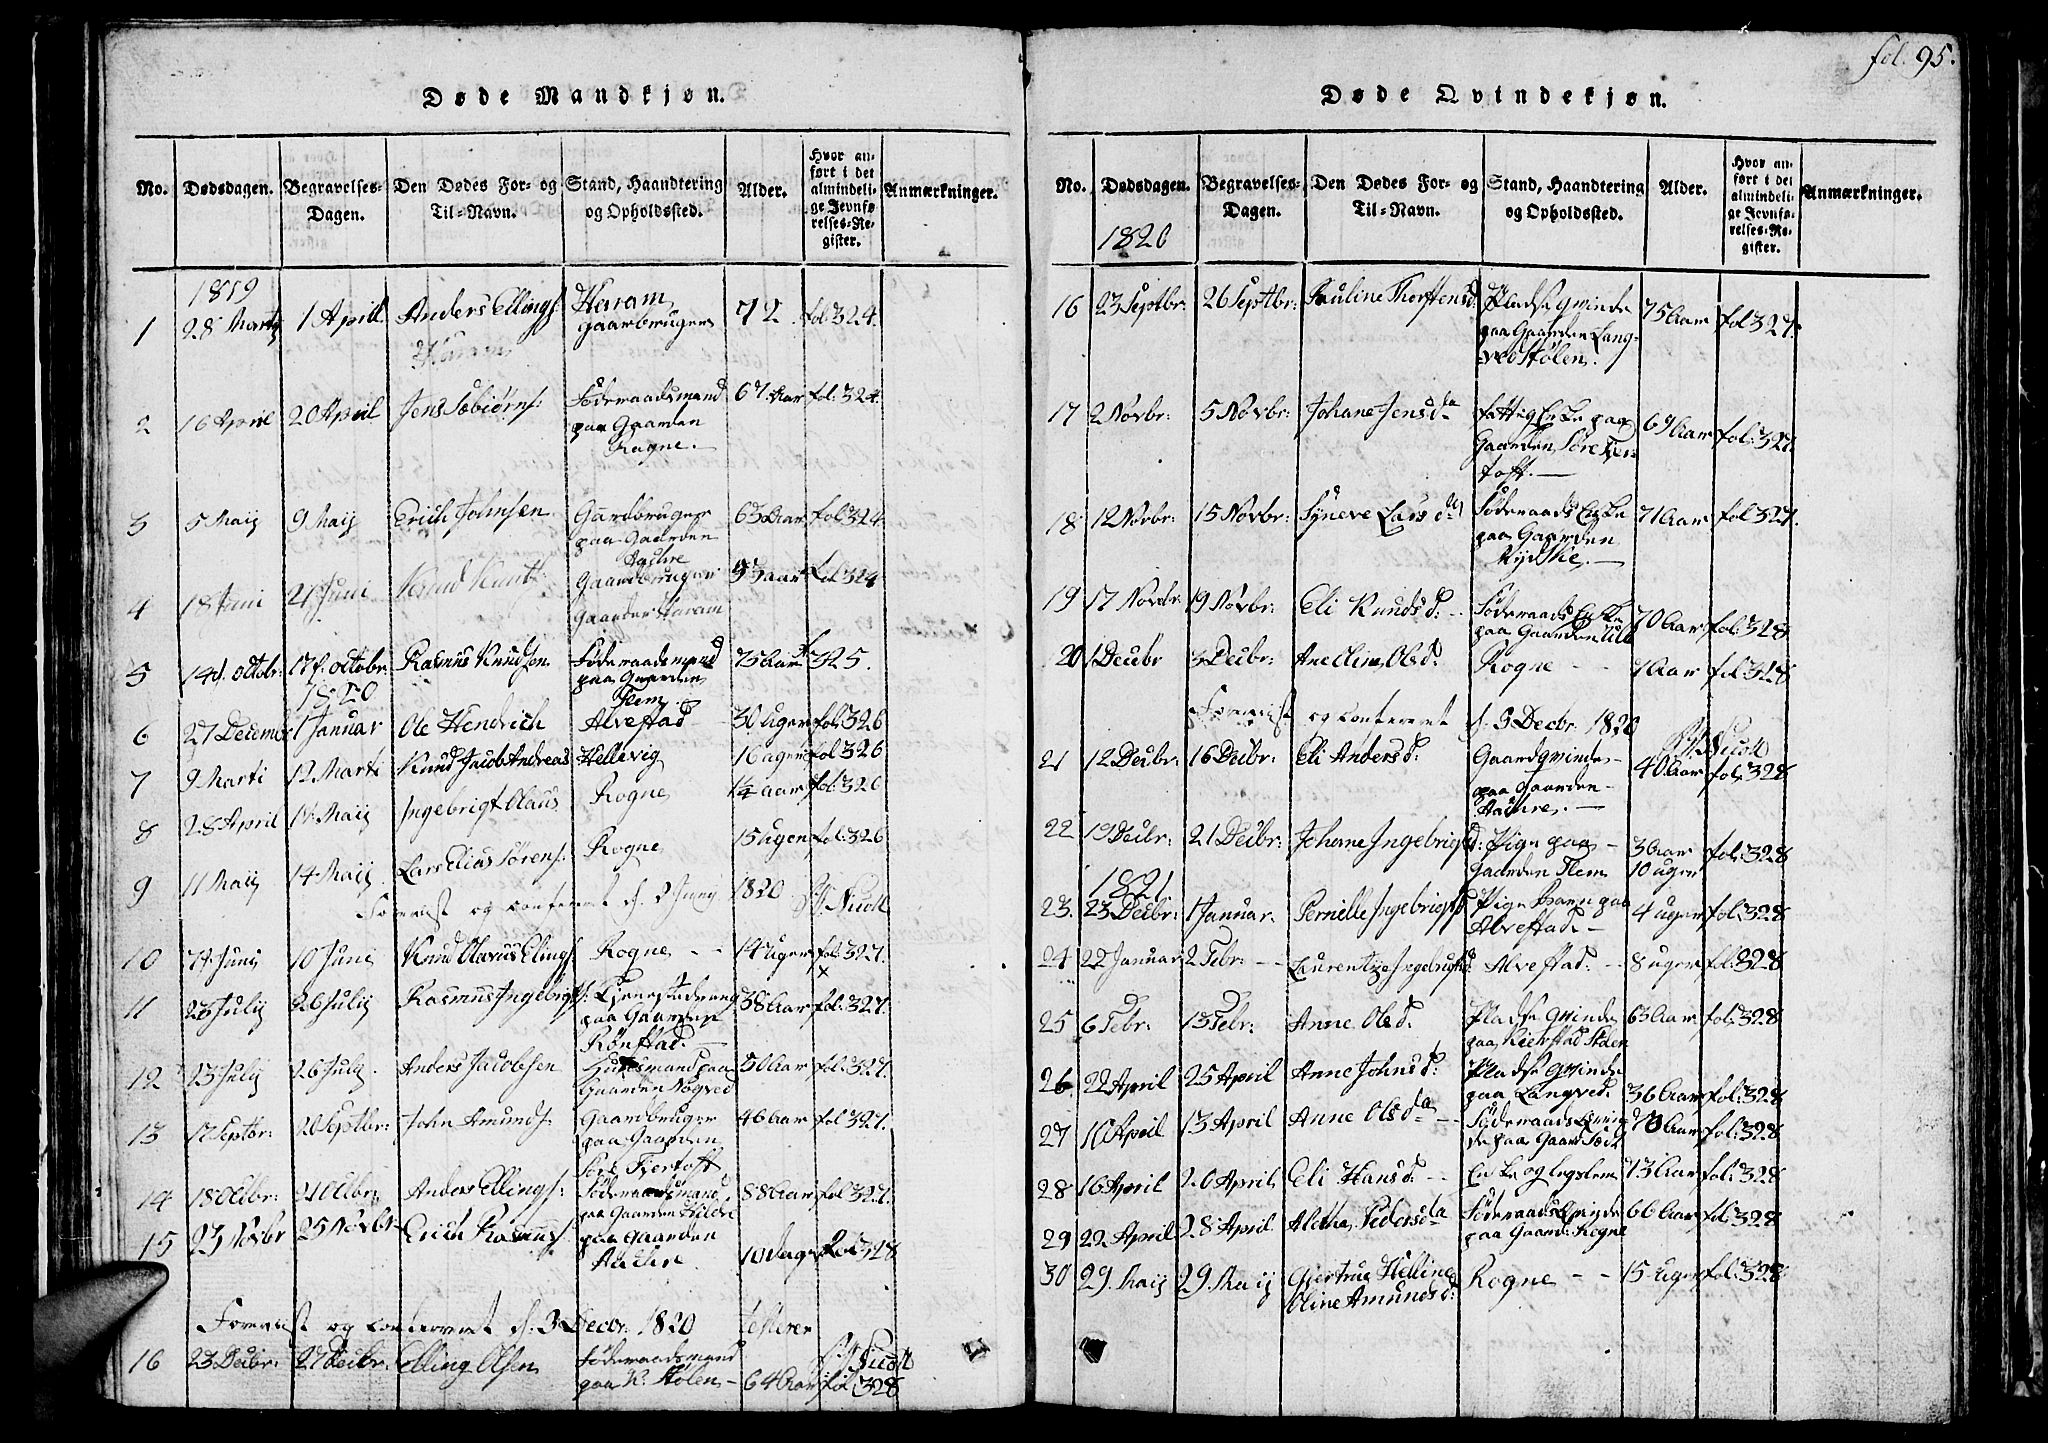 fol. 95.
Døde Mandkjøn.
No. Dødsdagen. Begravelses-Dagen. Den Dødes For- og Til-Navn. Stand, Haandtering og Opholdssted. Alder. Hvor anført i det almindelige Jevnførelses-Register. Anmærkninger.
1819
1 28 Martij 1 April Anders Ellings: Haram Gaardbruger 72 fol: 324.
Haram
2 16 April 20 April Jens Sæbiørns: Föderaadsmand paa Gaarden Rogne. 67 Aar fol: 324.
3 5 Maij 9 Maij Erich Johnsen Gaardbruger paa Gaarden Hauhre 63 Aar fol 324
4 18 Juni 21 Juni Knud Knuts: Gaardbruger Gaarden Haram 93 aar fol 324
5 14 octobr: 17 octobr Rasmus Knudson Föderaadsmand paa Gaarden Flem. 75 Aar f 325.
1820
6 27 December 1 Januar Ole Hendrich Alvestad 30 uger fol: 326
7 9 Marti 12 Marti Knud Jacob Andreas Hellevig 16 uger fol 326
8 28 April 1 Maij Ingebrigt Olaus Rogne 1/4 aar fol 326
9 11 Maij 14 Maij Lars Elias Sörens: Rogne 15 ugen fol: 326
Foreviist og confereret d. 2 Junij 1820
10 7 Junij 10 Juni Knud Olavus Elings: Rogne - - 14 uger fol: 327.
11 23 Julij 26 Julij Rasmus Ingebrigts: paa Gaarden Rönstad. 38 Aar fol: 327.
12 23 Julij 26 Julij. Anders Jacobsen Huusmand paa Gaarden Nogved 50 Aar fol: 327.
13 17 Septbr: 20 Septbr: John Amunds: Gaardbruger paa Gaarden Söre Fjertoft 46 Aar fol 327.
14 18 Octbr: 21 Octbr: Anders Ellings: Föderaadsmand paa Gaarden Hildre 88 Aar fol 327.
15 23 Novbr 25 Novbr Erich Rasmus: paa Gaarden Hauhre. 10 dage fol 328
Foreviist og confereret d: 3 Decbr: 1820
16 23 Decbr: 27 Decbr: Elling Olsen Föderaadsmand paa K. Stölen - 64 Aar fol 328
Døde Qvindekjøn.
No. Dødsdagen. Begravelses-Dagen. Den Dødes For- og Til-Navn. Stand, Haandtering og Opholdssted. Alder. Hvor anført i det almindelige Jevnførelses-Register. Anmærkninger.
1820
16 23 Septbr: 26 Septbr: Pauline Thorstensd: Pladseqvinde paa Gaarden Langved Stölen. 75 Aar fol 327.
17 2 Novbr: 5 Novbr: Johane Jensda fattig Enke paa Gaarden Söre Fjertoft. 69 Aar fol: 327.
18 12 Novbr: 15 Novbr: Syneve Larsda Föderaads Enke paa Gaarden 71 Aar fol 327.
19 17 Novbr 19 Novbr: Eli Knudsd: - Föderaads Enke paa Gaarden Ulla 70 Aar fol: 328
20 1 Decbr 3 Decbr: Ane Elina Olsd: Rogne - - 7 Aar fol 328
Foreviist og confereret d. 3 Decbr. 1820
21 12 Decbr: 16 Decbr: Eli Andersd: Gaardqvinde - paa Gaarden - Hauhre. - 40 Aar fol: 328
22 19 Decbr: 21 Decbr: Johanne Ingebrigtsd: Pige paa - Gaarden Flem 3 Aar 10 uger fol: 328
1821
23. 23 Decbr: 1 Januar. Pernille Ingebrigtsd Pige Barn paa Alvestad. - 4 uger fol: 328
24 22 Januar 2 Febr: - - Laurentze Ingebrigtsd: Alvestad. - 8 uger fol: 328
25 6 Febr: 13 Febr: Anne Olsd. Pladse qvinde paa Kierstad Stölen 63 Aar fol: 328
26. 22 April 25 April Anne Johnsd: Pladse qvinde paa Langved. 36 Aar fol: 328
27 10 April 13 April Anne Olsda - Föderaads Qvinde paa Gaard 70 Aar fol: 328
28 16 April 20 April Eli Hansd: - - Enke og Legslem 73 Aar fol: 328
29 22 April 28 April Alethe Pedersda Föderaads Qvinde paa Gaard: Rogne 66 Aar fol: 328
30 29 Maij 29. Maij Giertrue Helline Oline Amundsd: Rogne - - 15 uger fol: 328